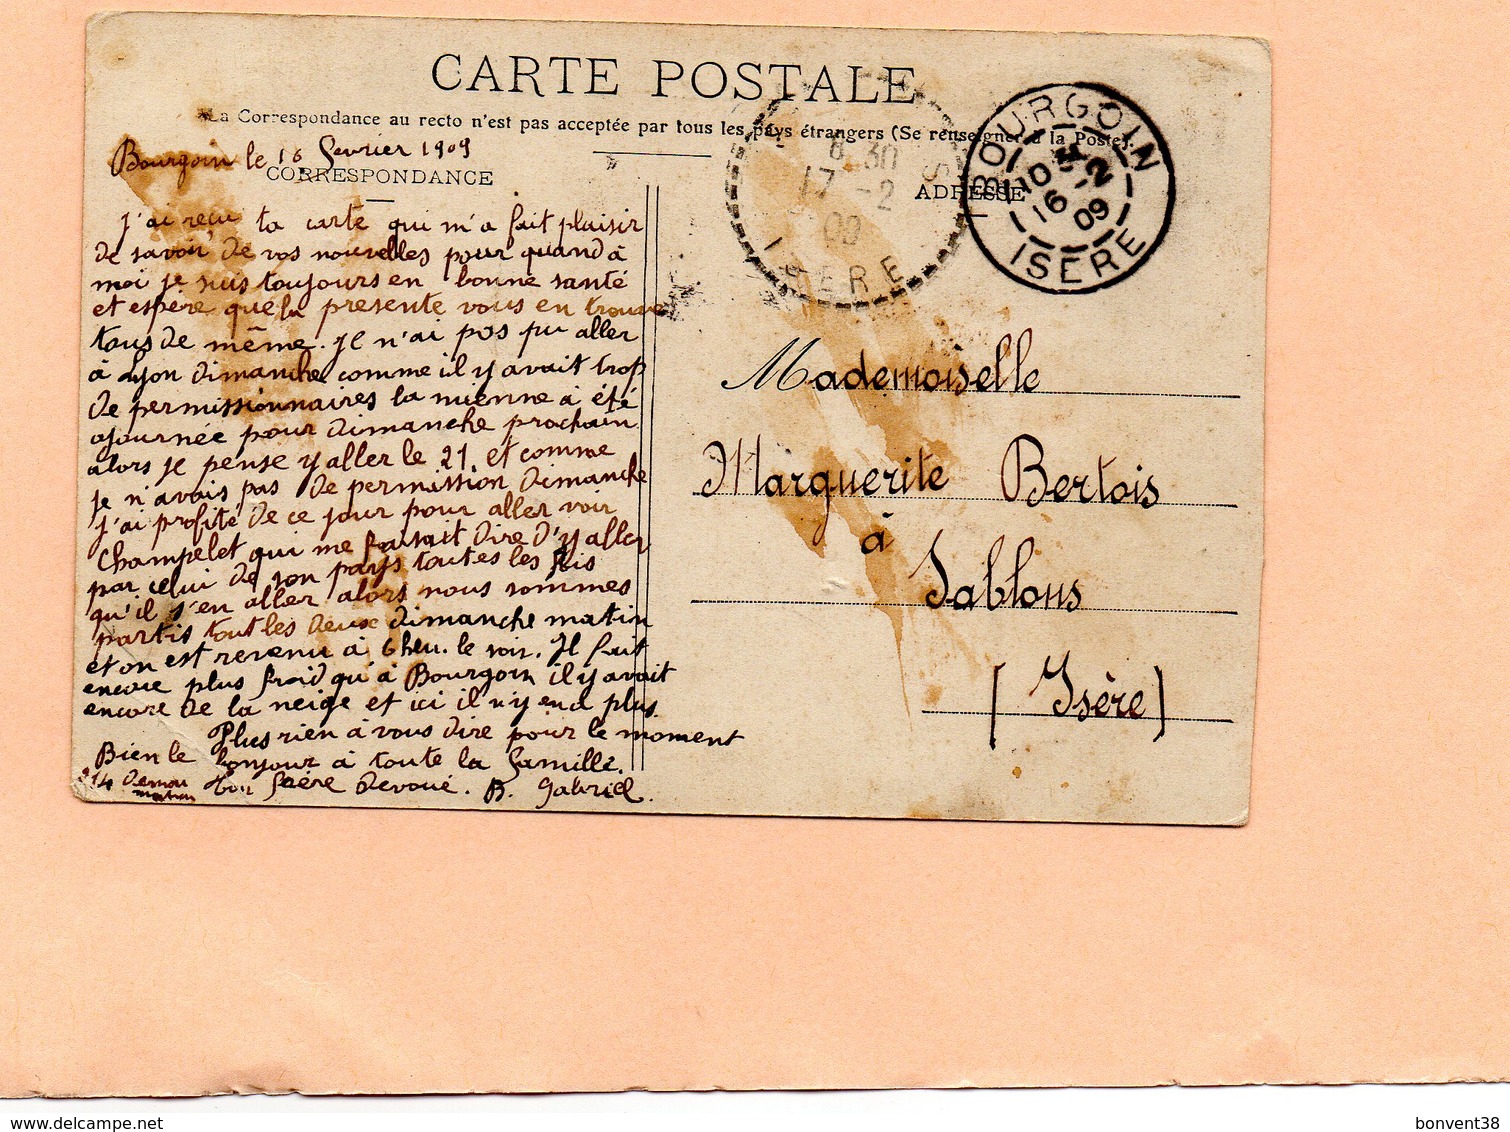 CARTE POSTALE
La Correspondance au recto n'est pas acceptée par tous les pays étrangers (Se renseigner à la Poste).
Bourgoin le 16 fevrier 1909
CORRESPONDANCE
j'ai reçu ta carte qui m'a fait plaisir
de savoir de vos nouvelles pour quand à
moi je suis toujours en bonne santé
et espere que la presente vous en trouve
tous de même. je n'ai pas pu aller
à Lyon dimanche comme il y avait trop
de permissionnaires la mienne à été
ajournée pour dimanche prochain
alors je pense y aller le 21. et comme
je n'avais pas de permission dimanche
j'ai profité de ce jour pour aller voir
Champelet qui me faisait dire d'y aller
par celui de son pays toutes les fois
qu'il s'en aller alors nous sommes
partis tout les deux dimanche matin
et on est revenu à 6 heu. le soir. Il fait
encore plus froid qu'à Bourgoin il y avait
encore de la neige et ici il n'y en a plus
Plus rien à vous dire pour le moment
Bien le bonjour à toute la famille.
Ton frère devoué. B. Gabriel.
ADRESSE
Mademoiselle
Marguerite Bertois
à
Sablons
(Isère)
BOURGOIN
16 -2
09
ISÈRE
8 30
17 -2
09
ISÈRE
bonvent38